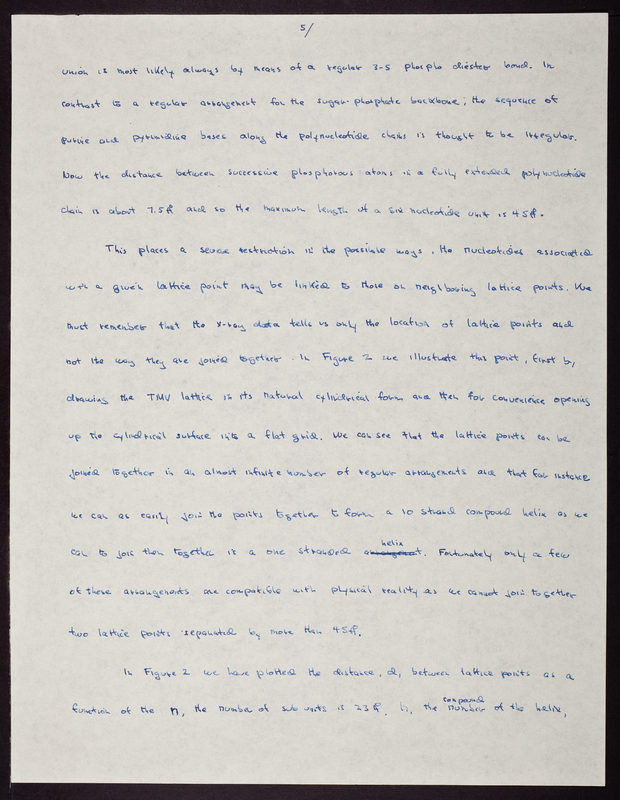 5/
union is most likely always by means of a regular 3-5 phospho diester bond. In
contrast to a regular arrangement for the sugar-phosphate backbone, the sequence of
purine and pyrimidine bases along the polynucleotide chains is thought to be irregular.
Now the distance between successive phosphorous atoms in a fully extended polynucleotide
chain is about 7.5Å and so the maximum length of a six nucleotide unit is 45Å.
This places a severe restriction in the possible ways, the nucleotides associated
with a given lattice point may be linked to those on neighbouring lattice points. We
must remember that the X-ray data tells us only the location of lattice points and
not the way they are joined together. In Figure 2 we illustrate this point, first by
drawing the TMV lattice in its natural cylindrical form and then for convenience opening
up the cylindrical surface into a flat grid. We can see that the lattice points can be
joined together in an almost infinite number of regular arrangements and that for instance
we can as easily join the points together to form a 10 strand compound helix as we
can to join then together in a one stranded helix. Fortunately only a few
of these arrangements are compatible with physical reality as we cannot join together
two lattice points separated by more than 45Å.
In Figure 2 we have plotted the distance, d, between lattice points as a
function of the n, the number of sub units in 23Å, the compound number of the helix,